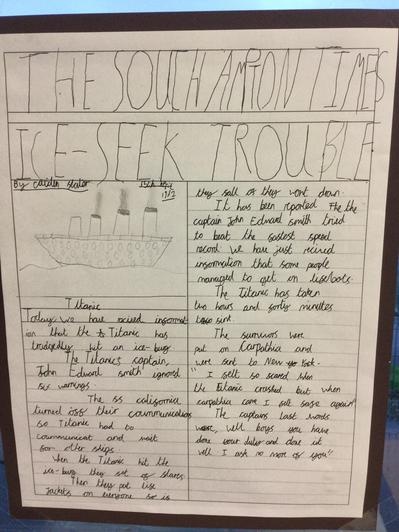 THE SOUTHAMPTON TIMES
ICE-SEEK TROUBLE
By caiden slater 15th April
1912
Titanic
Today we have recived informat
ion that the Titanic has
tradgedly hit an ice-burg
The Titanics captain,
John Edward smith ignored
six warnings.
The ss califonia
turned off their coumunication
so Titanic had to
coumunicat and wait
for other ships.
when the Titanic hit the
ice-burg they set of flares
Then they put life
Jackets on everyone so is
they fall of they wont drown.
It has been reported the the
captain John Edward smith tried
to beat the fastest speed
record we have just recived
information that some people
managed to get on lifeboats.
The Titanic has taken
two hours and forty minutes
to sink.
The survivors were
put on Carpathia and
were sent to New york.
" I felt so scared when
the titanic crashed but when
carpathia came I felt safe again"
The captains last words
were, well boys you have
done your duty and done it
well I ask no more of you"